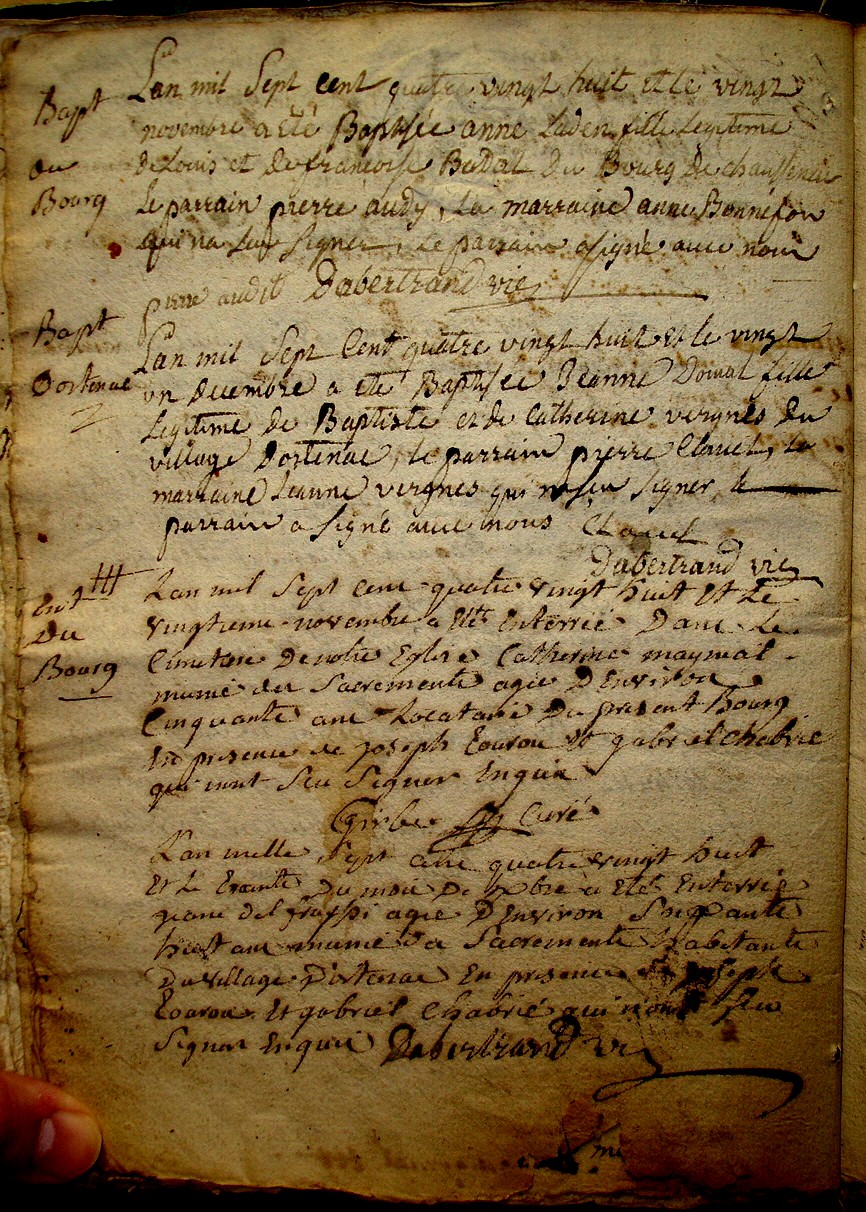 Bapt
du
Bourg
Lan mil Sept Cent quatre vingt huit et le vingt
novembre a eté Baptisée anne Laden fille Legitime
de Louis et de francoise Badal du Bourg de
Le parrain pierre audy, La marraine anne Bonnefon
qui na Signer, le parrain a signé avec nous
pierre audit Dabertrand vic
Bapt
Dortenac
Lan mil Sept Cent quatre vingt huit et le vingt
un decembre a eté Baptisée Jeanne Douval fille
Legitime de Baptiste et de Catherine vergnes du
village Dortenac, le parrain pierre Clauel, La
marraine Jeanne vergnes qui na seu Signer, le
parrain a Signé avec nous Clauel
Dabertrand vic
Ent
du
Bourg
Lan mil Sept cent quatre vingt huit Et Le
vingtieme novembre a Eté Enterrée Dans Le
Cimetiere De notre Eglise Catherine maymal
munie des Sacrements agée D Environ
Cinquante ans Locataire Du present Bourg
En presence de joseph Eourou Et gabriel chabrie
qui nont Seu Signer Enquis
Girbe Curé
L'an mille Sept cent quatre vingt huit
Et Le Trante Du mois De xbre a Eté Enterrée
jeane del agée D Environ Soixante
huit ans munie des Sacrements habitante
Du village D'ortenac En presence de joseph
Eourou Et gabriel Chabrié qui n'ont Seu
Signer Enquis Dabertrand vic